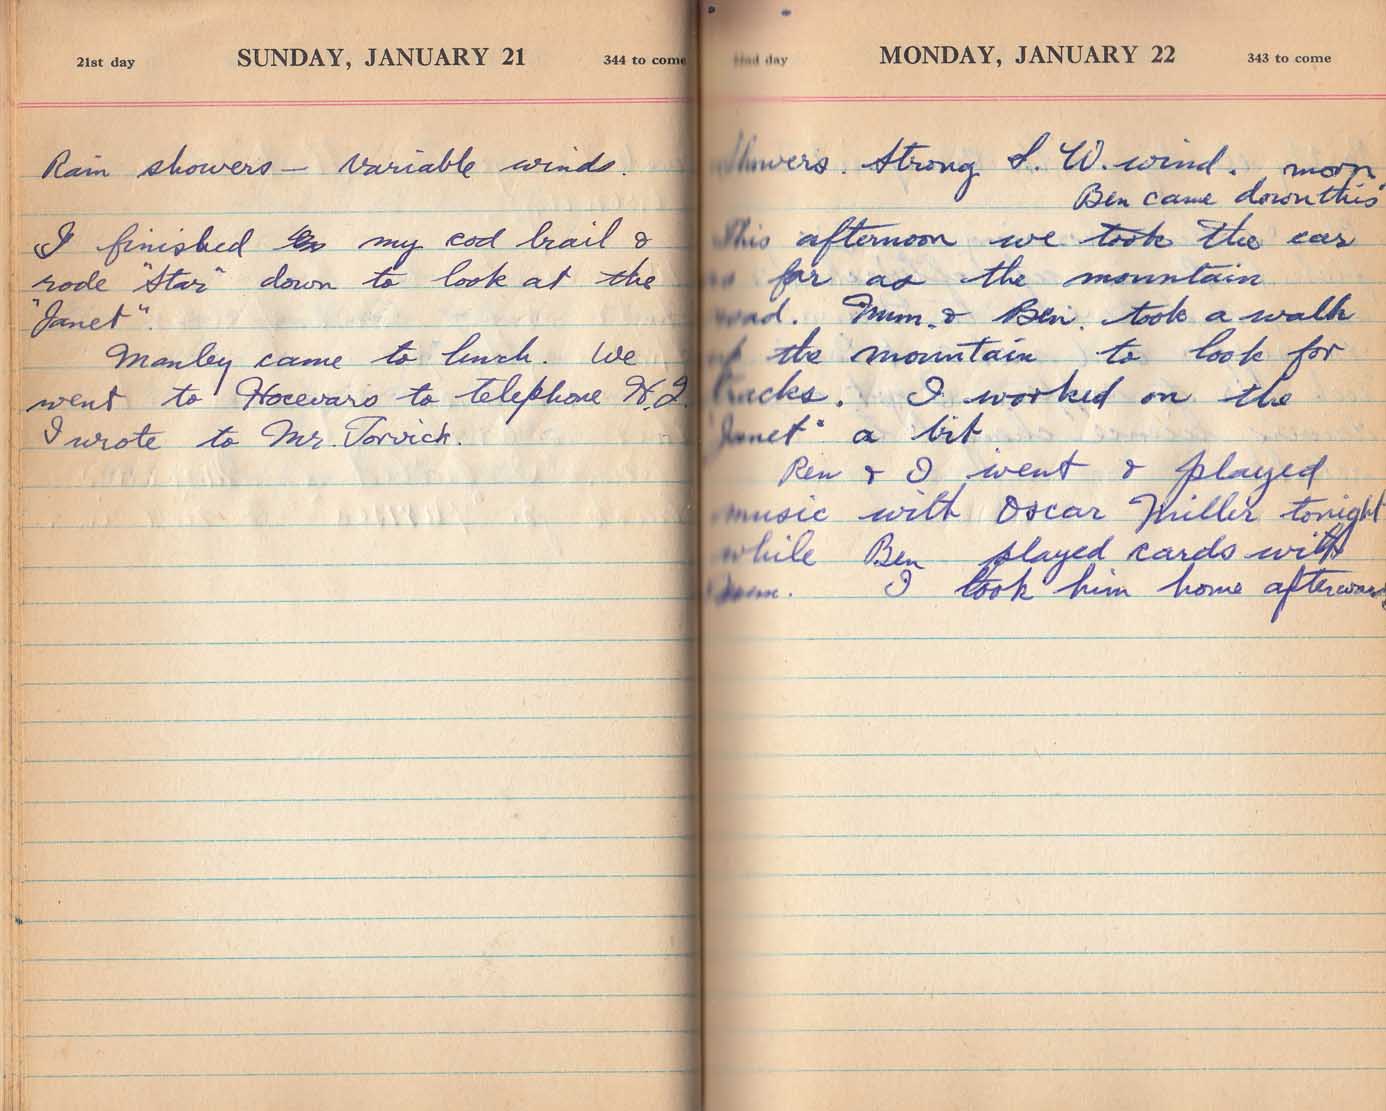 21st day SUNDAY, JANUARY 21 344 to come
Rain showers — Variable winds.
I finished my cod brail &
rode "Star" down to look at the
"Janet".
Manley came to lunch. We
went to Hocevars to telephone H.J.
I wrote to Mr. Torvick.
22nd day MONDAY, JANUARY 22 343 to come
Showers. Strong S. W. wind. morn
Ben came down this
This afternoon we took the car
as far as the mountain
road. Mum. & Ben. took a walk
up the mountain to look for
tracks. I worked on the
"Janet" a bit
Ren & I went & played
music with Oscar Miller tonight
while Ben played cards with
Mum. I took him home afterwards